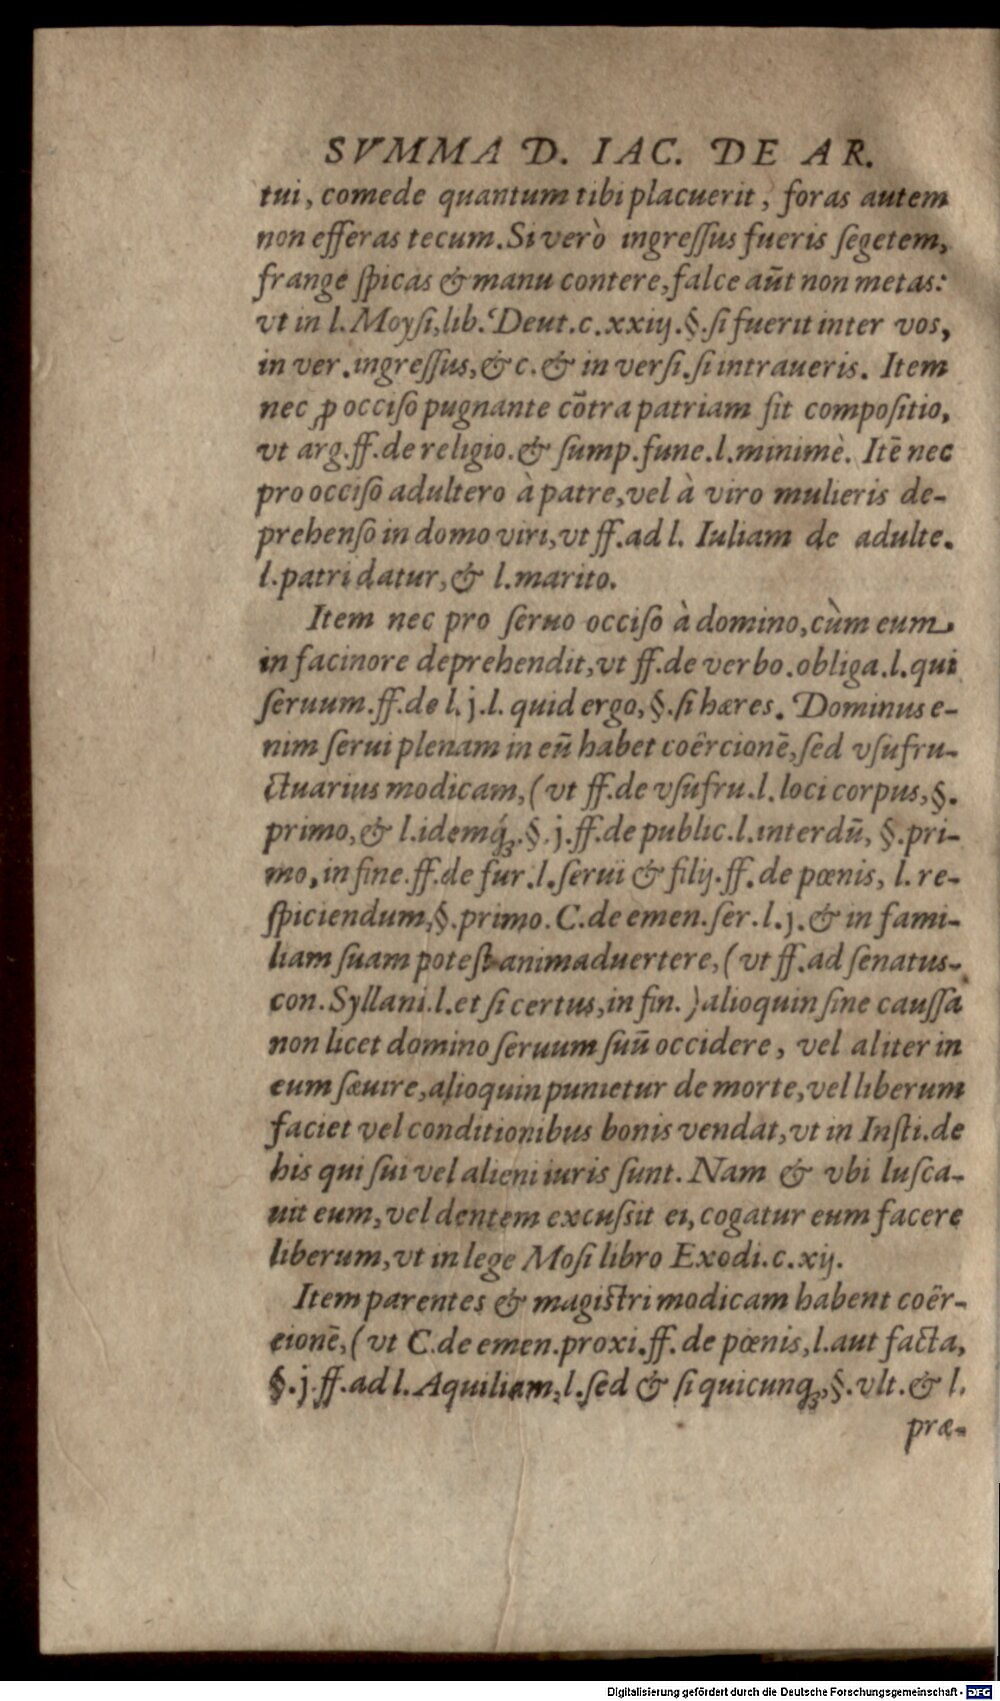 SVMMA D. IAC. DE AR.
tui, comede quantum tibi placuerit, foras autem
non efferas tecum. Si verò ingreſſus fueris ſegetem,
frange ſpicas & manu contere, falce aūt non metas:
vt in l. Moyſi, lib. Deut. c. xxiij. §. ſi fuerit inter vos,
in ver. ingreſſus, & c. & in verſi. ſi intraueris. Item
nec ꝓ occiſo pugnante cōtra patriam ſit compoſitio,
vt arg. ff. de religio. & ſump. fune. l. minimè. Itē nec
pro occiſo adultero à patre, vel à viro mulieris de-
prehenſo in domo viri, vt ff. ad l. Iuliam de adulte.
l. patri datur, & l. marito.
Item nec pro ſeruo occiſo à domino, cùm eum
in facinore deprehendit, vt ff. de verbo. obliga. l. qui
ſeruum. ff. de l. j. l. quid ergo, §. ſi hæres. Dominus e-
nim ſerui plenam in eū habet coërcionē, ſed vſufru-
ctuarius modicam, ( vt ff. de vſufru. l. loci corpus, §.
primo, & l. idemq́ꝫ. §. j. ff. de public. l. interdū, §. pri-
mo, in fine. ff. de fur. l. ſerui & filij. ff. de pœnis, l. re-
ſpiciendum, §. primo. C. de emen. ſer. l. j. & in fami-
liam ſuam poteſt animaduertere, ( vt ff. ad ſenatus-
con. Syllani. l. et ſi certus, in fin. ) alioquin ſine cauſſa
non licet domino ſeruum ſuū occidere, vel aliter in
eum ſæuire, alioquin punietur de morte, vel liberum
faciet vel conditionibus bonis vendat, vt in Inſti. de
his qui ſui vel alieni iuris ſunt. Nam & vbi luſca-
uit eum, vel dentem excuſsit ei, cogatur eum facere
liberum, vt in lege Moſi libro Exodi. c. xij.
Item parentes & magiſtri modicam habent coër-
cionē, ( vt C. de emen. proxi. ff. de pœnis, l. aut facta,
§. j. ff. ad l. Aquiliam, l. ſed & ſi quicunqꝫ, §. vlt. & l.
præ-
Digitalisierung gefördert durch die Deutsche Forschungsgemeinschaft - DFG